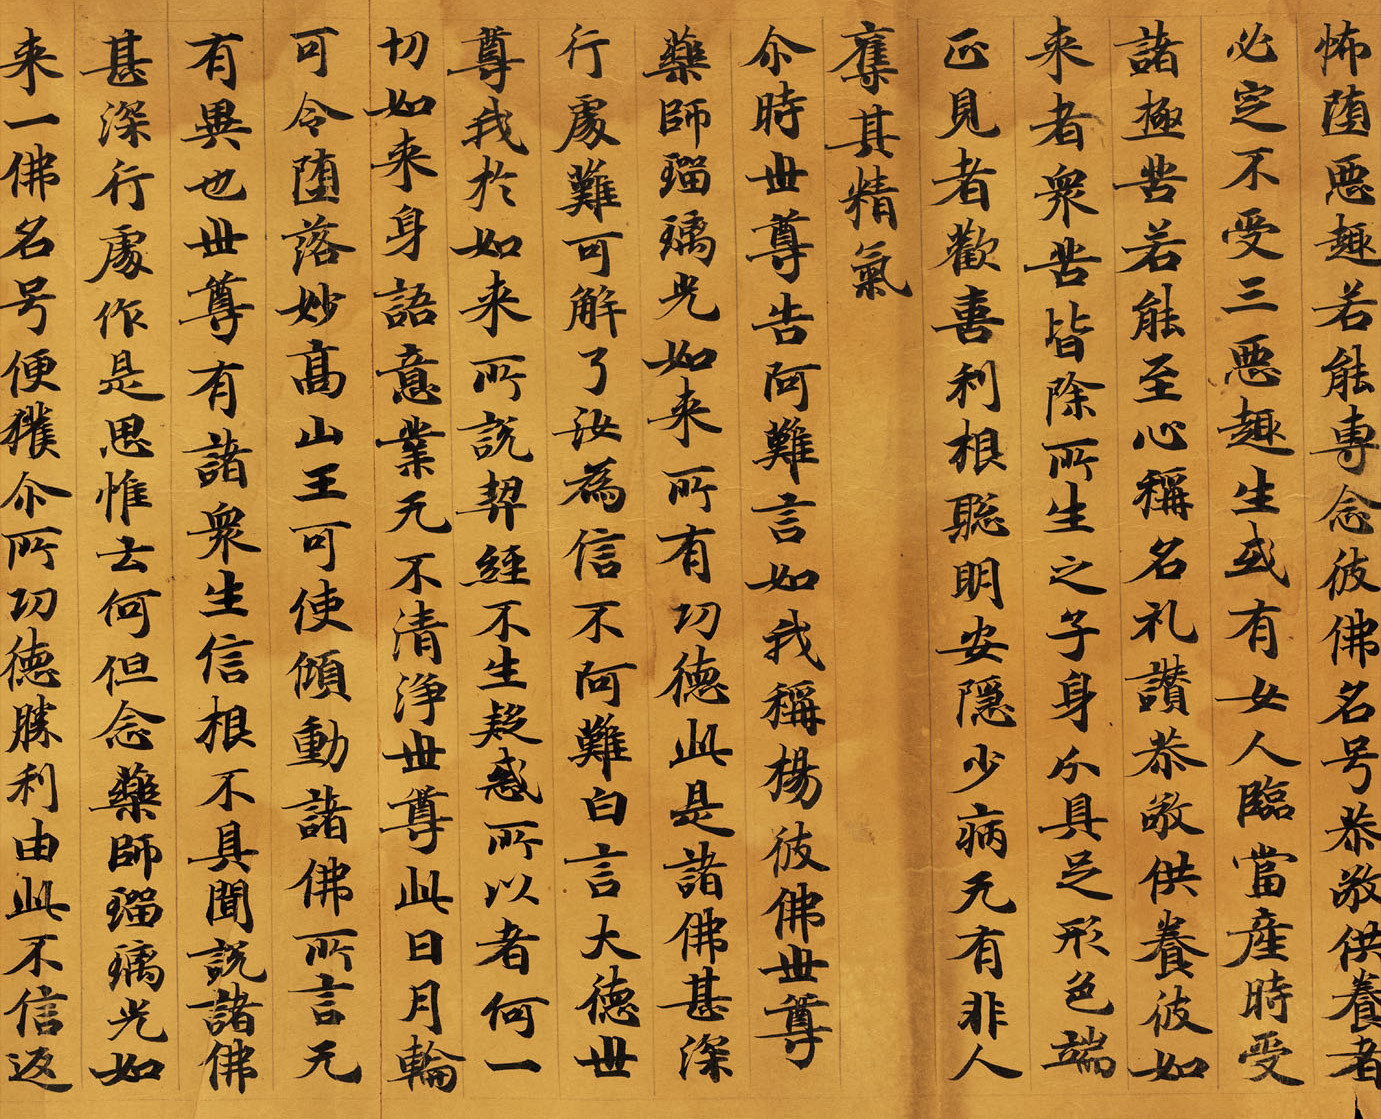 怖墮惡趣若能專念彼佛名号恭敬供養者
必定不受三惡趣生或有女人臨當產時受
諸極苦若能至心稱名礼讚恭敬供養彼如
来者衆苦皆除所生之子身分具足形色端
正見者歡喜利根聡明安隱少病无有非人
奪其精氣
尒時世尊告阿難言如我稱揚彼佛世尊
藥師瑠璃光如来所有功德此是諸佛甚深
行處難可解了汝為信不阿難白言大德世
尊我於如来所說契經不生疑惑所以者何一
切如来身語意業无不清淨世尊此日月輪
可令墮落妙高山王可使傾動諸佛所言无
有異也世尊有諸衆生信根不具聞說諸佛
甚深行處作是思惟云何但念藥師瑠璃光如
来一佛名号便獲尒所功德勝利由此不信返